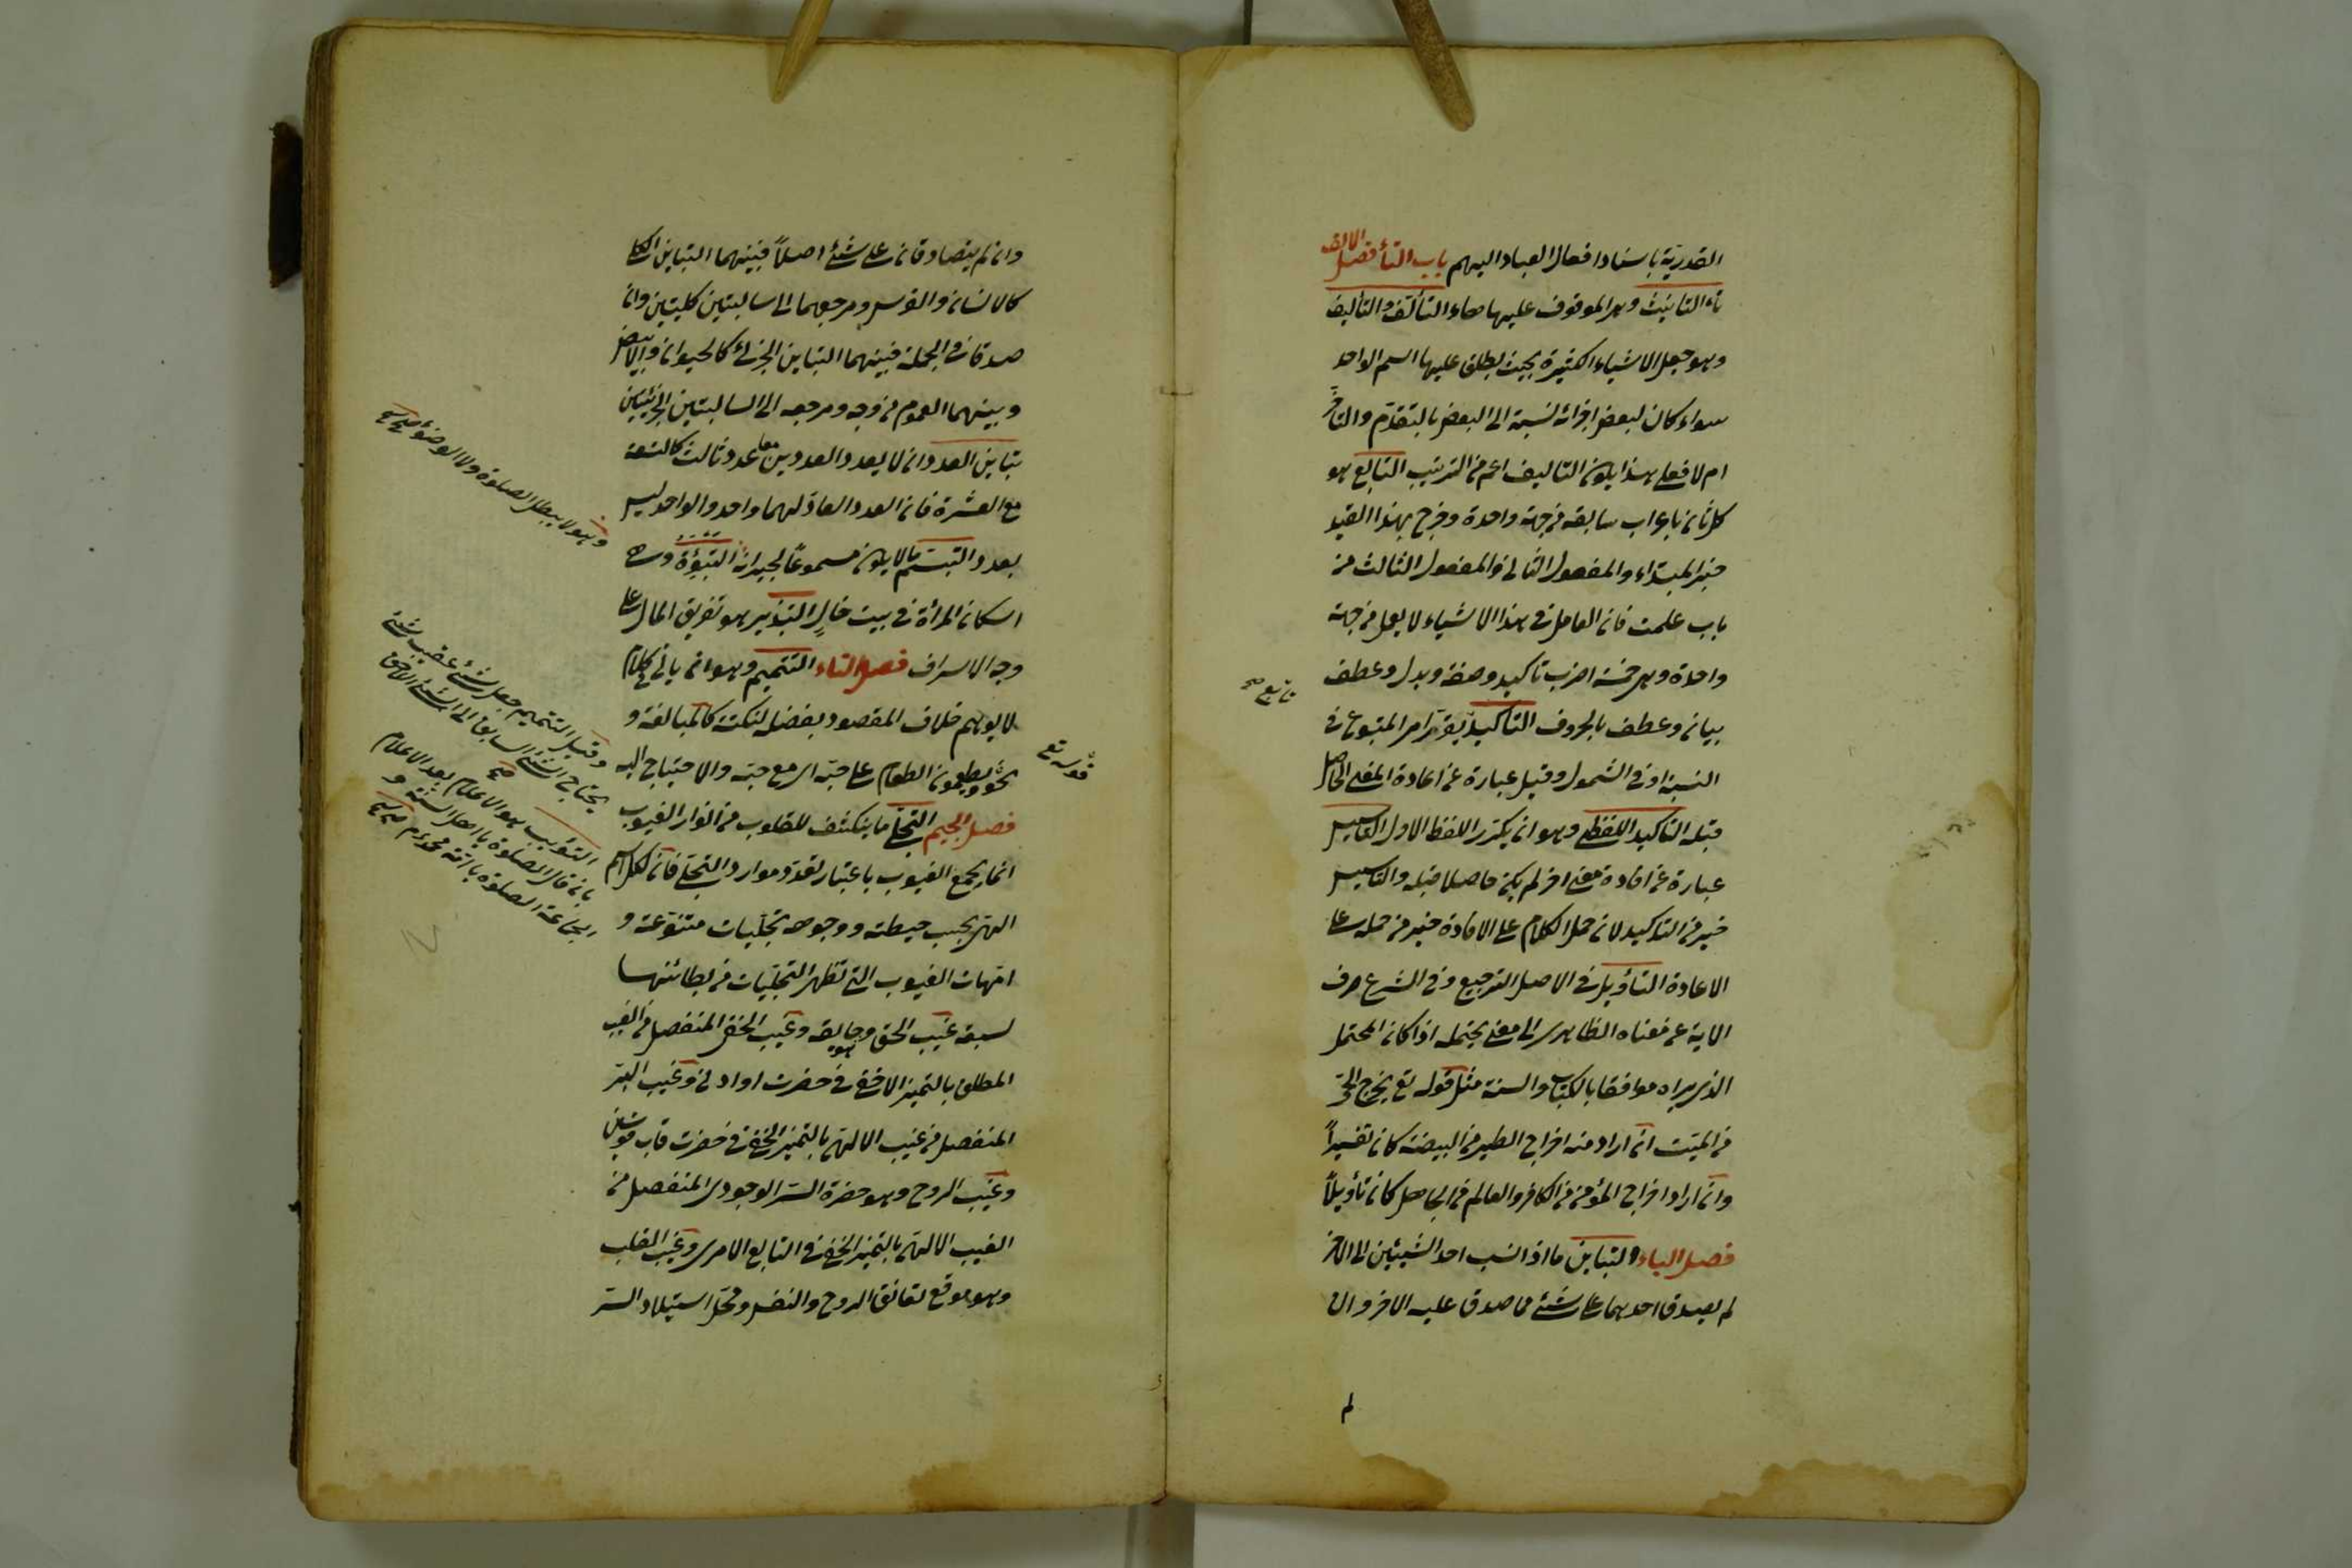 القدرية باسناد افعال العباد اليهم باب التأ فصل الالف
تاء التانيث وهو الموقوف عليها هاء التألف والتأليف
وهو جعل الاشياء الكثيرة بحيث يطلق عليها اسم الواحد
سواء كان لبعض اجزائه نسبة الى البعض بالتقدم والتأخر
ام لا فعلى هذا يكون التاليف اعم من الترتيب التابع هو
كل ثان باعراب سابقه من جهة واحدة وخرج بهذا القيد
خبر المبتداء والمفعول الثانى والمفعول الثالث من
باب علمت فان العامل فى هذا الاشياء لا يعمل من جهة
واحدة وهى خمسة اضرب تاكيد وصفة وبدل وعطف
بيان وعطف بالحروف التاكيد تابع يقرر امر المتبوع فى
النسبة او فى الشمول وقيل عبارة عن اعادة المعنى الحاصل
قبله التاكيد اللفظى وهو ان يكرر اللفظ الاول التاسيس
عبارة عن افادة معنى اخر لم يكن حاصلا قبله والتاسيس
خير من التاكيد لان حمل الكلام على الافادة خير من حمله على
الاعادة التأويل فى الاصل الترجيع وفى الشرع صرف
الاية عن معناه الظاهر الى معنى يحتمله اذا كان المحتمل
الذى يراه موافقا بالكتاب والسنة مثل قوله تع يخرج الحى
من الميت ان اراد منه اخراج الطير من البيضة كان تفسيراً
وان اراد اخراج المؤمن من الكافر والعالم من الجاهل كان تأويلاً
فصل الباء التباين ما اذا نسب احد الشيئين الى الاخر
لم يصدق احدهما على شئ مما صدق عليه الاخر وان
لم
وان لم يتصادقان على شئ اصلاً فبينهما التباين الكلى
كالانسان والفرس ومرجعهما الى سالبتين كليتين وان
صدقا فى الجملة فبينهما التباين الجزئى كالحيوان والابيض
وبينهما العموم من وجه ومرجعه الى السالبتين الجزئيتين
تباين العدد ان لا يعد العددين معا عدد ثالث كالتسعة
مع العشرة فان العدد العاد لهما واحد والواحد ليس
بعدد التبسم ما لا يكون مسموعاً لجيرانه التبوئة وهى
اسكان المرأة فى بيت خالٍ التبذير هو تفريق المال على
وجه الاسراف فصل التاء التتميم وهو ان ياتى فى كلام
لا يوهم خلاف المقصود بفضلة لنكتة كالمبالغة و
نحو ويطعمون الطعام على حبه اى مع حبه والاحتياج اليه
فصل الجيم التجلى ما ينكشف للقلوب من انوار الغيوب
انما يجمع الغيوب باعتبار تعدد موارد التجلى فان لكل اسم
الهى بحسب حيطته ووجوهه تجليات متنوعة و
امهات الغيوب التى تظهر التجليات من بطائنها
سبعة غيب الحق وحقايقه وغيب الخفى المنفصل من الغيب
المطلق بالتميز الاخفى فى حضرت اوادنى وغيب السر
المنفصل من غيب الالهى بالتميز الخفى فى حضرت قاب قوسين
وغيب الروح وهو حضرة السر الوجودى المنفصل من
الغيب الالهى بالتميز الخفى فى التابع الامرى وغيب القلب
وهو موقع تعانق الروح والنفس ومحل استيلاد السر
تابع صح
قوله تع
وهو لا يبطل الصلوة ولا الوضوء صح
وقيل التتميم جعل شئ عقيب شئ
يحتاج الشئ السابق الى الشئ اللاحق صح
التثويب هو الاعلام بعد الاعلام
بان قال الصلوة يا اهل السنة و
الجماعة الصلوة يا امة محمد م